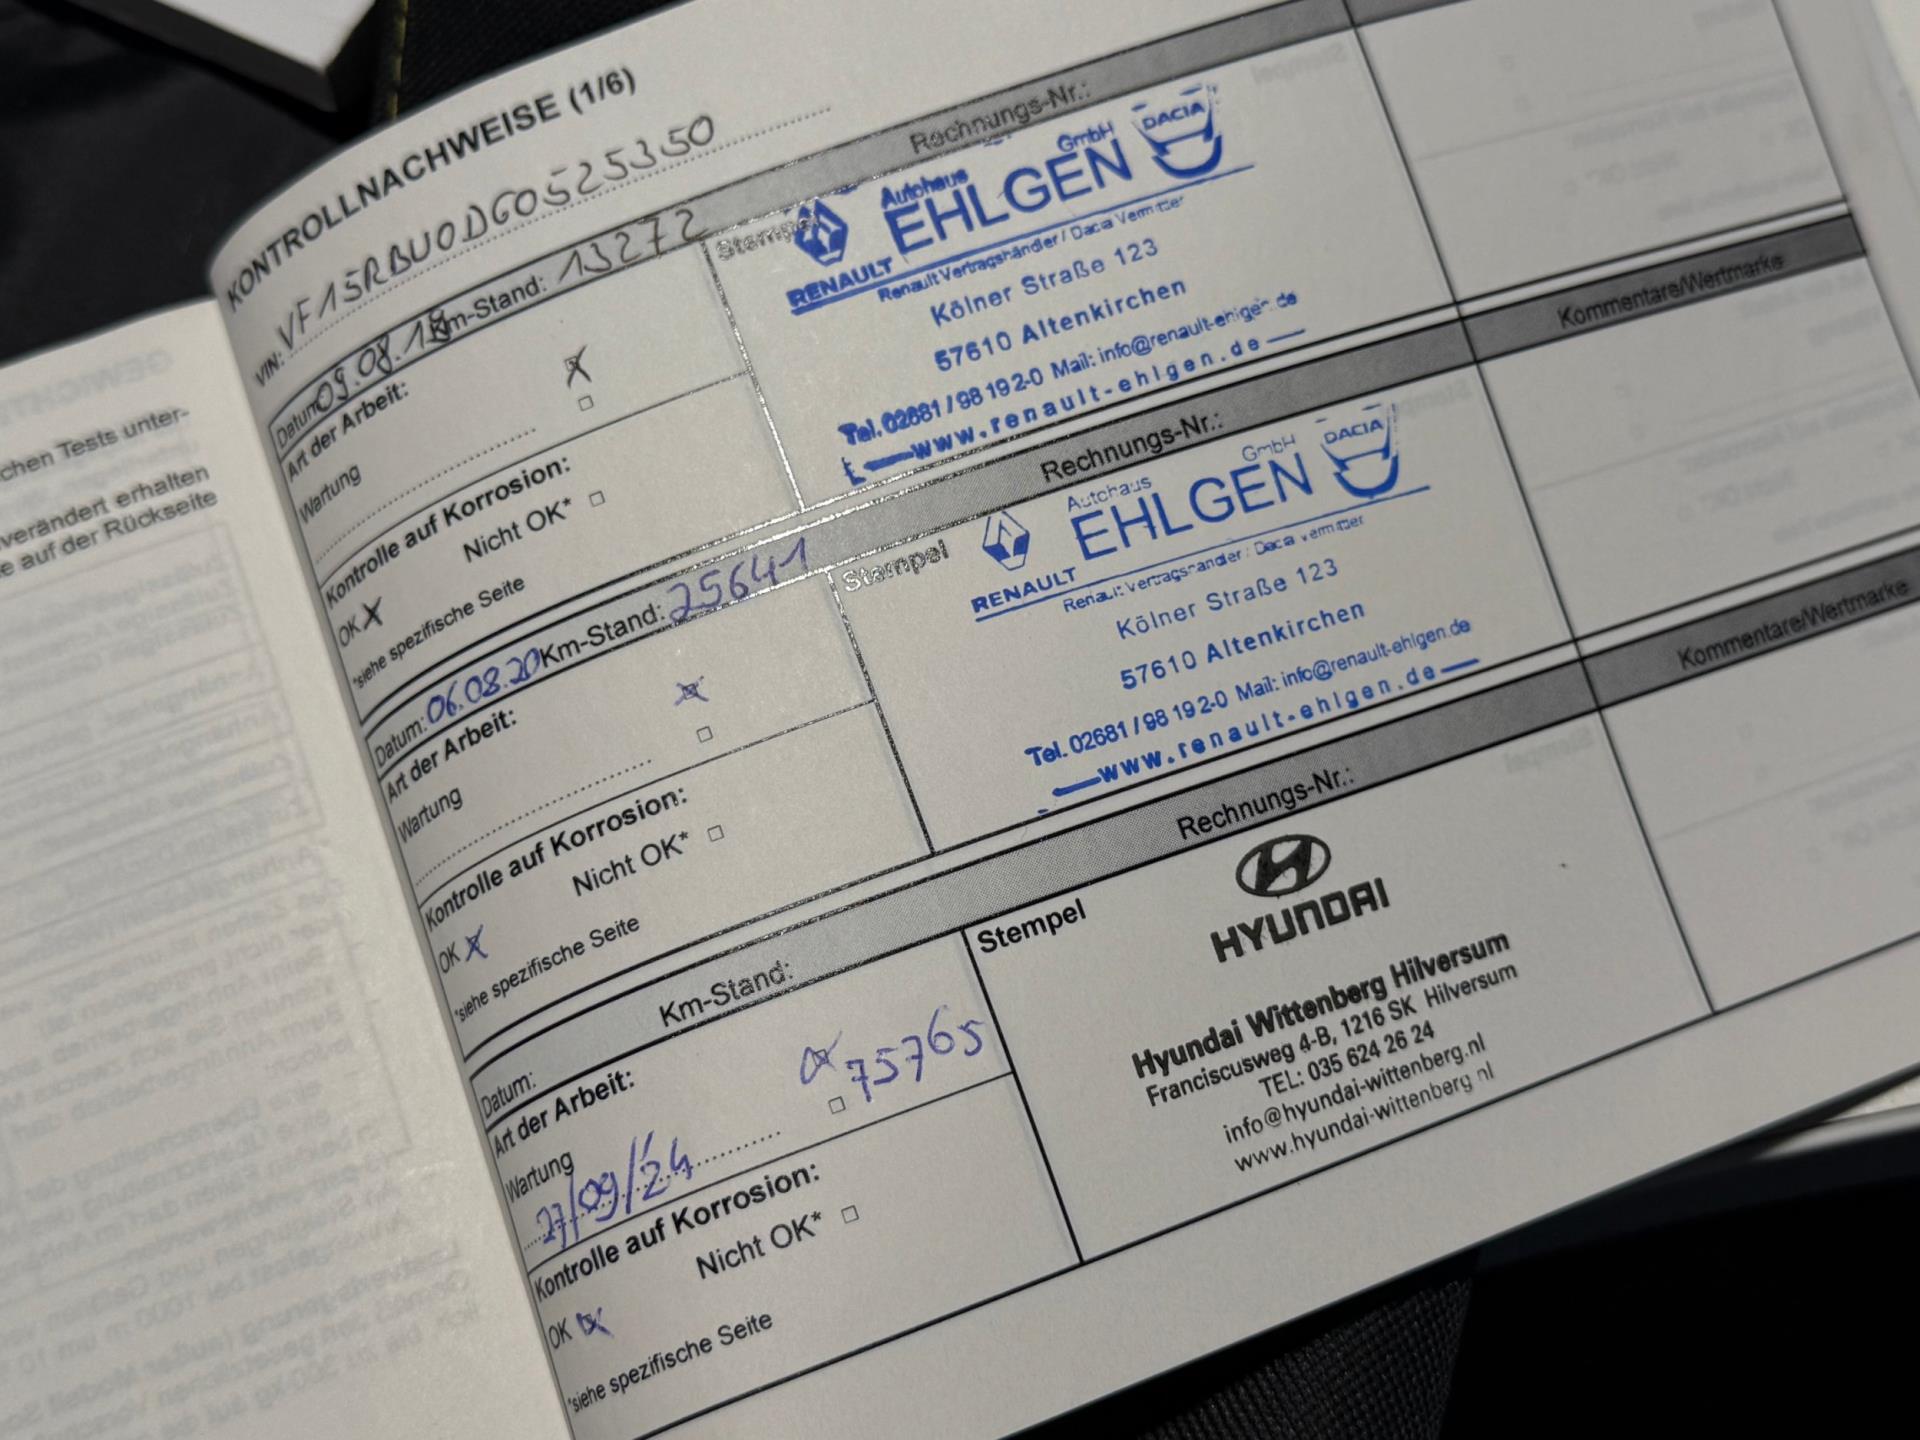 KONTROLLNACHWEISE (1/6)
VIN: VF15RBU0DG0525350
Datum: 09.08.19 Km-Stand: 13272 Rechnungs-Nr.:
Art der Arbeit:
Wartung
Kontrolle auf Korrosion:
OK X Nicht OK* □
*siehe spezifische Seite
Stempel
Autohaus
EHLGEN GmbH
DACIA
RENAULT
Renault Vertragshändler / Dacia Vermittler
Kölner Straße 123
57610 Altenkirchen
Tel. 02681 / 98 19 2-0 Mail: info@renault-ehlgen.de
www.renault-ehlgen.de
Datum: 06.08.20 Km-Stand: 25641 Rechnungs-Nr.: Kommentare/Wertmarke
Art der Arbeit:
Wartung
Kontrolle auf Korrosion:
OK X Nicht OK* □
*siehe spezifische Seite
Stempel
Autohaus
EHLGEN GmbH
DACIA
RENAULT
Renault Vertragshändler / Dacia Vermittler
Kölner Straße 123
57610 Altenkirchen
Tel. 02681 / 98 19 2-0 Mail: info@renault-ehlgen.de
www.renault-ehlgen.de
Datum: Km-Stand: Rechnungs-Nr.: Kommentare/Wertmarke
Art der Arbeit:
75765
Wartung
27/09/24
Kontrolle auf Korrosion:
OK X Nicht OK* □
*siehe spezifische Seite
Stempel
HYUNDAI
Hyundai Wittenberg Hilversum
Franciscusweg 4-B, 1216 SK Hilversum
TEL: 035 624 26 24
info@hyundai-wittenberg.nl
www.hyundai-wittenberg.nl
chen Tests unter-
verändert erhalten
e auf der Rückseite